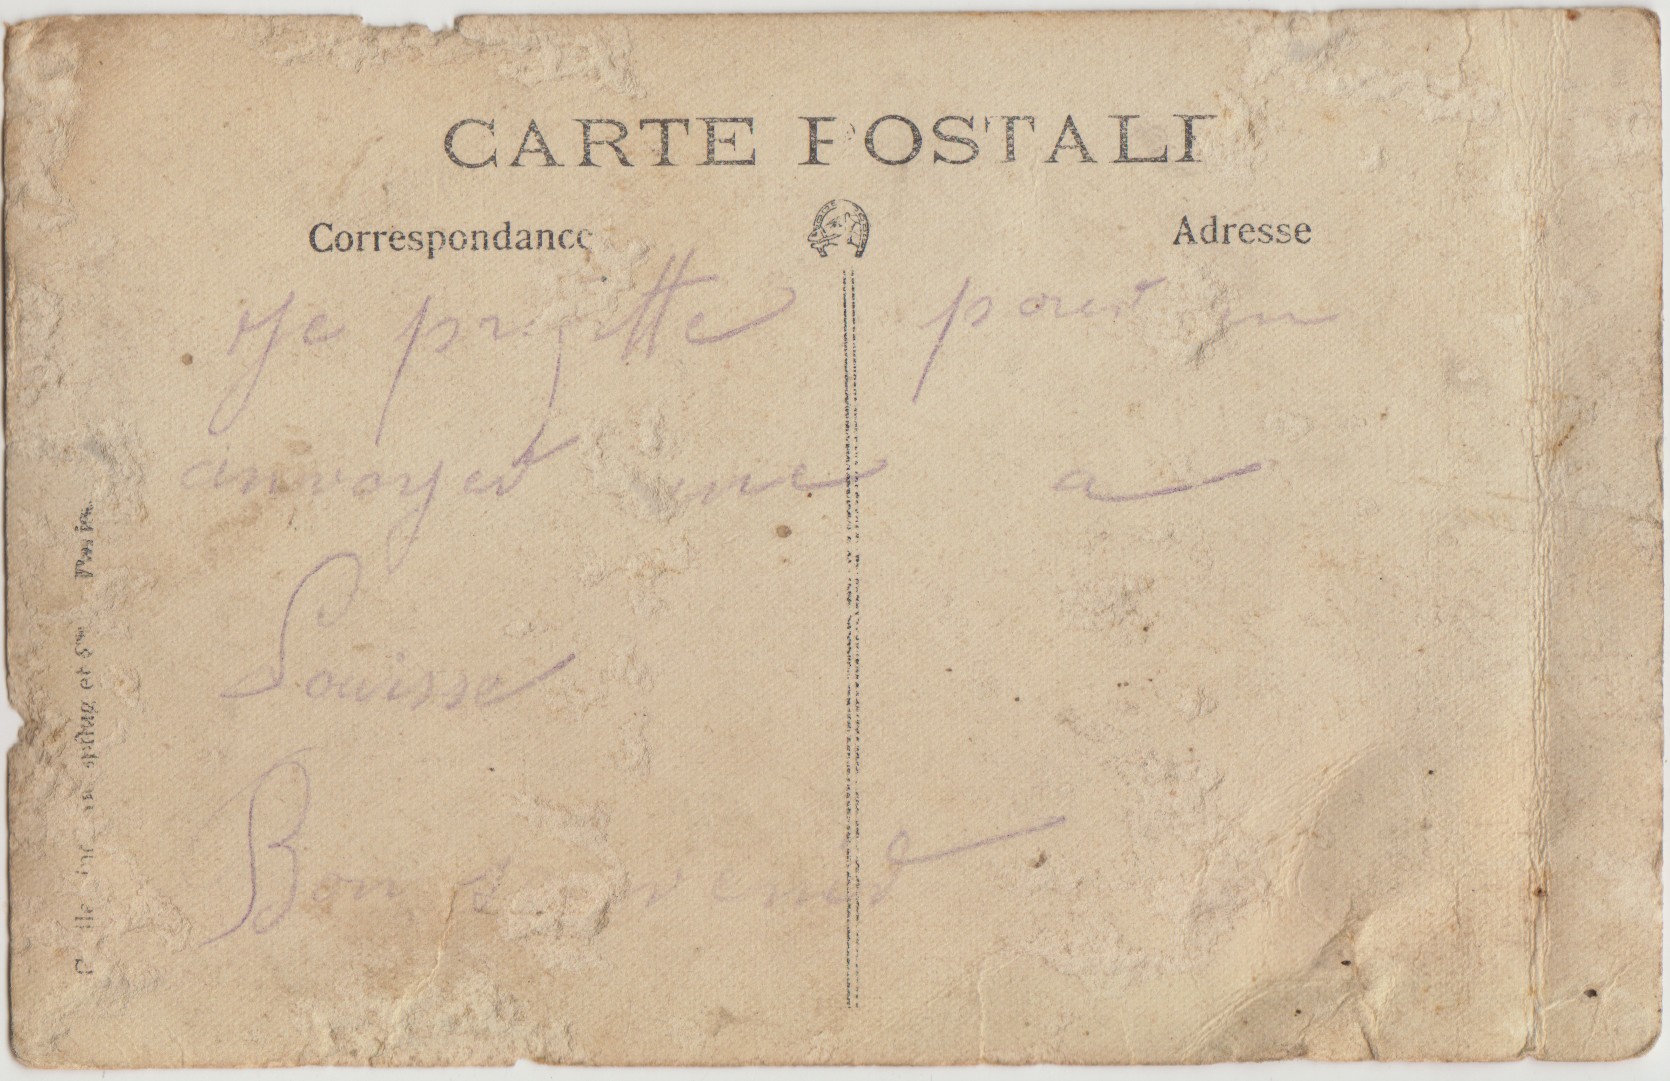 CARTE POSTALE
Correspondance
Adresse
Je profitte pour en
anvoyer une a
Louisse
Bon souvenir
et Paris